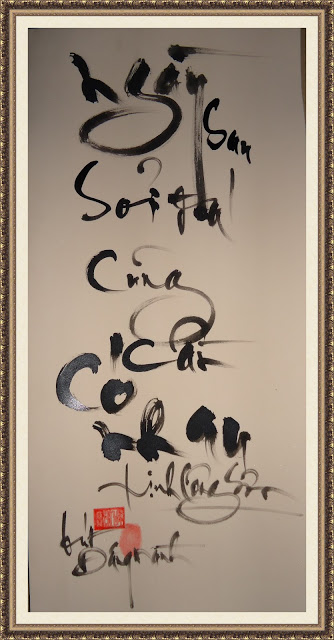 Ngày
Sau
Sỏi đá
Cũng
Cần
Có
nhau
Trịnh Công Sơn
bút